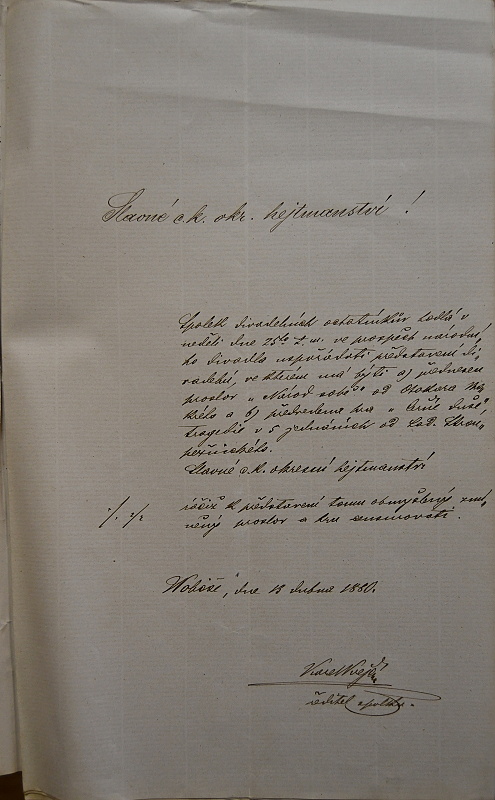 Slavné c.k. okr. hejtmanství!
Spolek divadelních ochotníkův hodlá v
neděli dne 25ho t. m. ve prospěch národní
ho divadla uspořádati představení di
vadelní, ve kterém má býti a) přednesen
proslov „Národ sobě" od Otokara
a b) předvedena hra „Černé duše",
tragedie v 5 jednáních od Lad. Strou
pežnického.
Slavné c.k. okresní hejtmanství
račiž k představení tomu obmýšlený zmí
něný proslov a hru censurovati.
./. 2/2
dne 13 dubna 1880.
Karel
ředitel spolku.